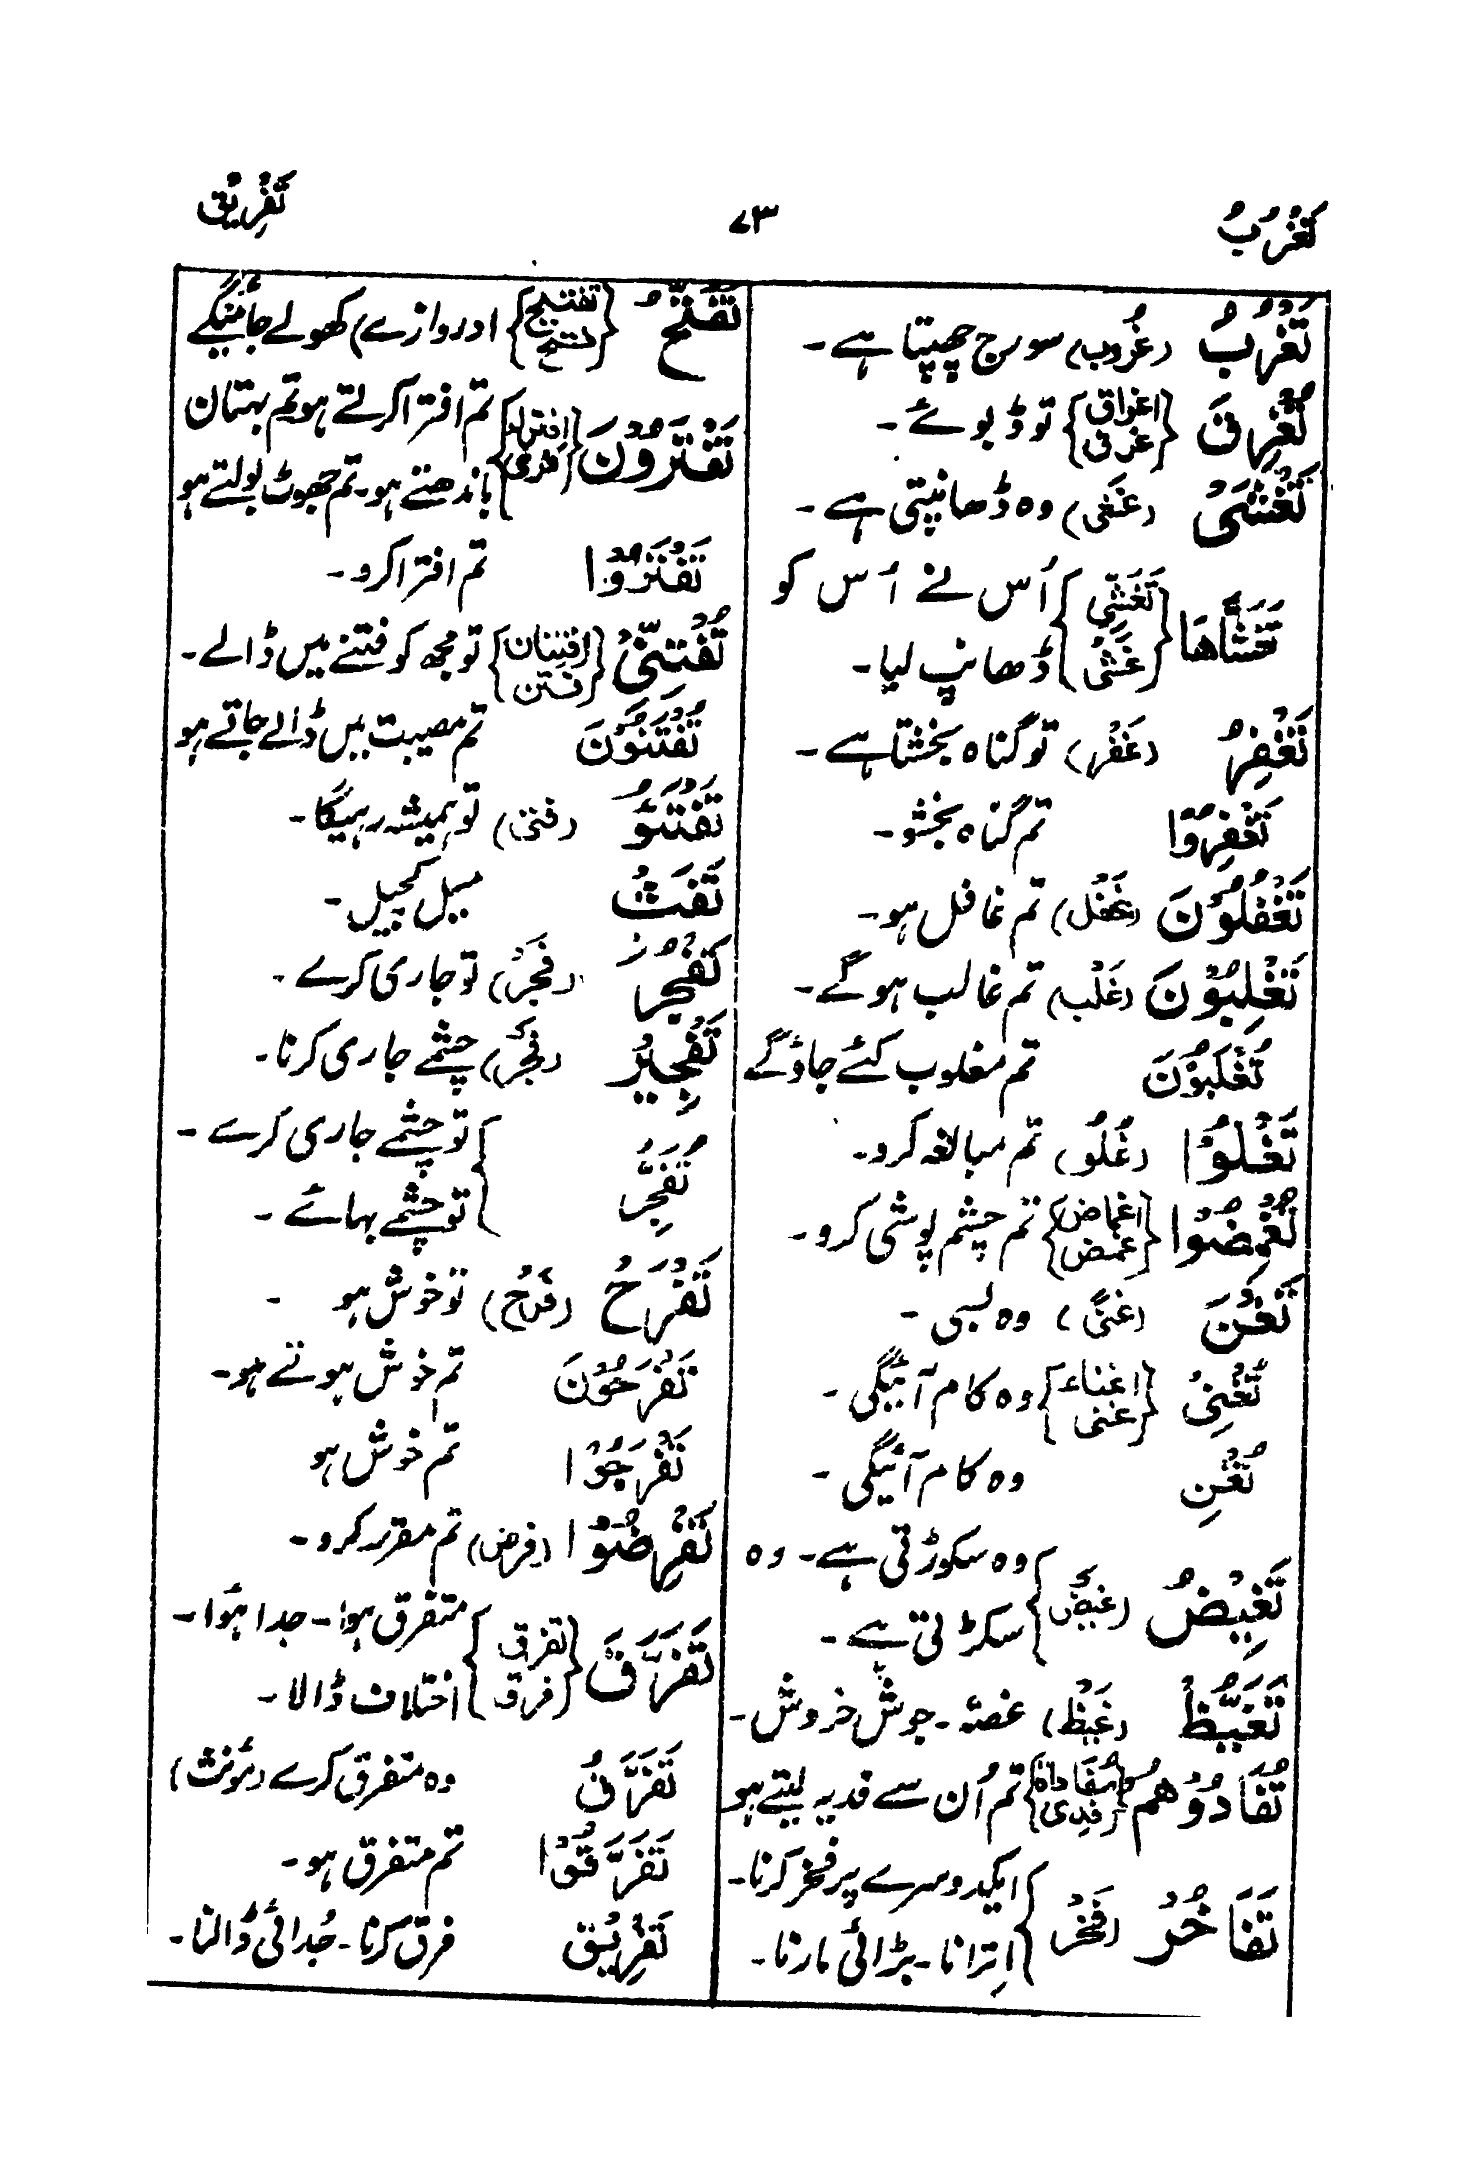 تَغْرُبُ
۷۳
تَفْرِيْق
تَغْرُبُ (غُروب) سورج چھپتا ہے۔
تُغْرِقَ {اغراق غرق} تو ڈبوئے۔
تَغْشٰى (غَشْى) وہ ڈھانپتی ہے۔
تَغَشّٰاهَا {تَغَشِّى غَشْى} اُس نے اُس کو
ڈھانپ لیا۔
تَغْفِرْ (غَفْر) تو گناہ بخشتا ہے۔
تَغْفِرُوْا تم گناہ بخشو۔
تَغْفُلُوْنَ (غَفْل) تم غافل ہو۔
تَغْلِبُوْنَ (غَلْب) تم غالب ہوگے۔
تُغْلَبُوْنَ تم مغلوب کئے جاؤگے
تَغْلُوْا (غُلُو) تم مبالغہ کرو۔
تُغْمِضُوْا {اغماض غمض} تم چشم پوشی کرو۔
تَغْنَ (غنًى) وہ بسی۔
تُغْنِىْ {اغناء غنى} وہ کام آئیگی۔
تُغْنِ وہ کام آئیگی۔
تَغِيْضُ (غَيْض) وہ سکوڑتی ہے۔ وہ
سکڑتی ہے۔
تَغَيُّظ (غَيْظ) غصہ۔ جوش خروش۔
تُفَادُوْهُمْ {مُفَاداة فدى} تم اُن سے فدیہ لیتے ہو
تَفَاخُرْ (فَخْر) ایکدوسرے پر فخر کرنا۔
اِترانا۔ بڑائی مارنا۔
تُفَتَّحُ {تفتيح فتح} (دروازے) کھولے جائینگے
تَفْتَرُوْنَ {افترا فرى} تم افترا کرتے ہو تم بہتان
باندھتے ہو۔ تم جھوٹ بولتے ہو
تَفْتَرُوْا تم افترا کرو۔
تَفْتِنِّىْ {افتنان فتن} تو مجھ کو فتنے میں ڈالے۔
تُفْتَنُوْنَ تم مصیبت میں ڈالے جاتے ہو
تَفْتَؤُ (فتئ) تو ہمیشہ رہیگا۔
تَفَثْ میل کچیل۔
تَفْجُرَ (فَجْر) تو جاری کرے۔
تَفْجِيْر (فَجْر) چشمے جاری کرنا۔
تُفَجِّرْ تو چشمے جاری کرے۔
تو چشمے بہائے۔
تَفْرَحْ (فَرَح) تو خوش ہو۔
تَفْرَحُوْنَ تم خوش ہوتے ہو۔
تَفْرَحُوْا تم خوش ہو
تَفْرِضُوْا (فرض) تم مقرر کرو۔
تَفَرَّقَ {تفرق فرق} متفرق ہوا۔ جدا ہوا۔
اختلاف ڈالا۔
تَفَرَّقَ وہ متفرق کرے (مؤنث)
تَفَرَّقُوْا تم متفرق ہو۔
تَفْرِيْق فرق کرنا۔ جُدائی ڈالنا۔